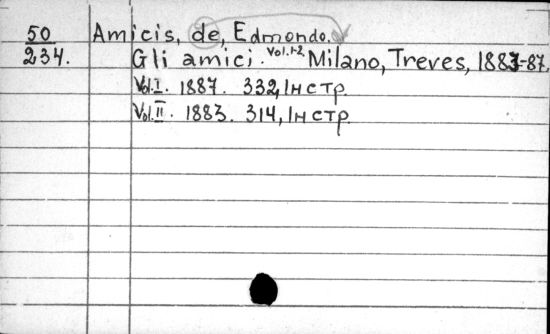 50 Amicis, de, Edmondo.
234. Gli amici. Vol.1-2. Milano, Treves, 1883-87.
Vol.I. 1887. 332, Iнстр.
Vol.II. 1883. 314, Iнстр.